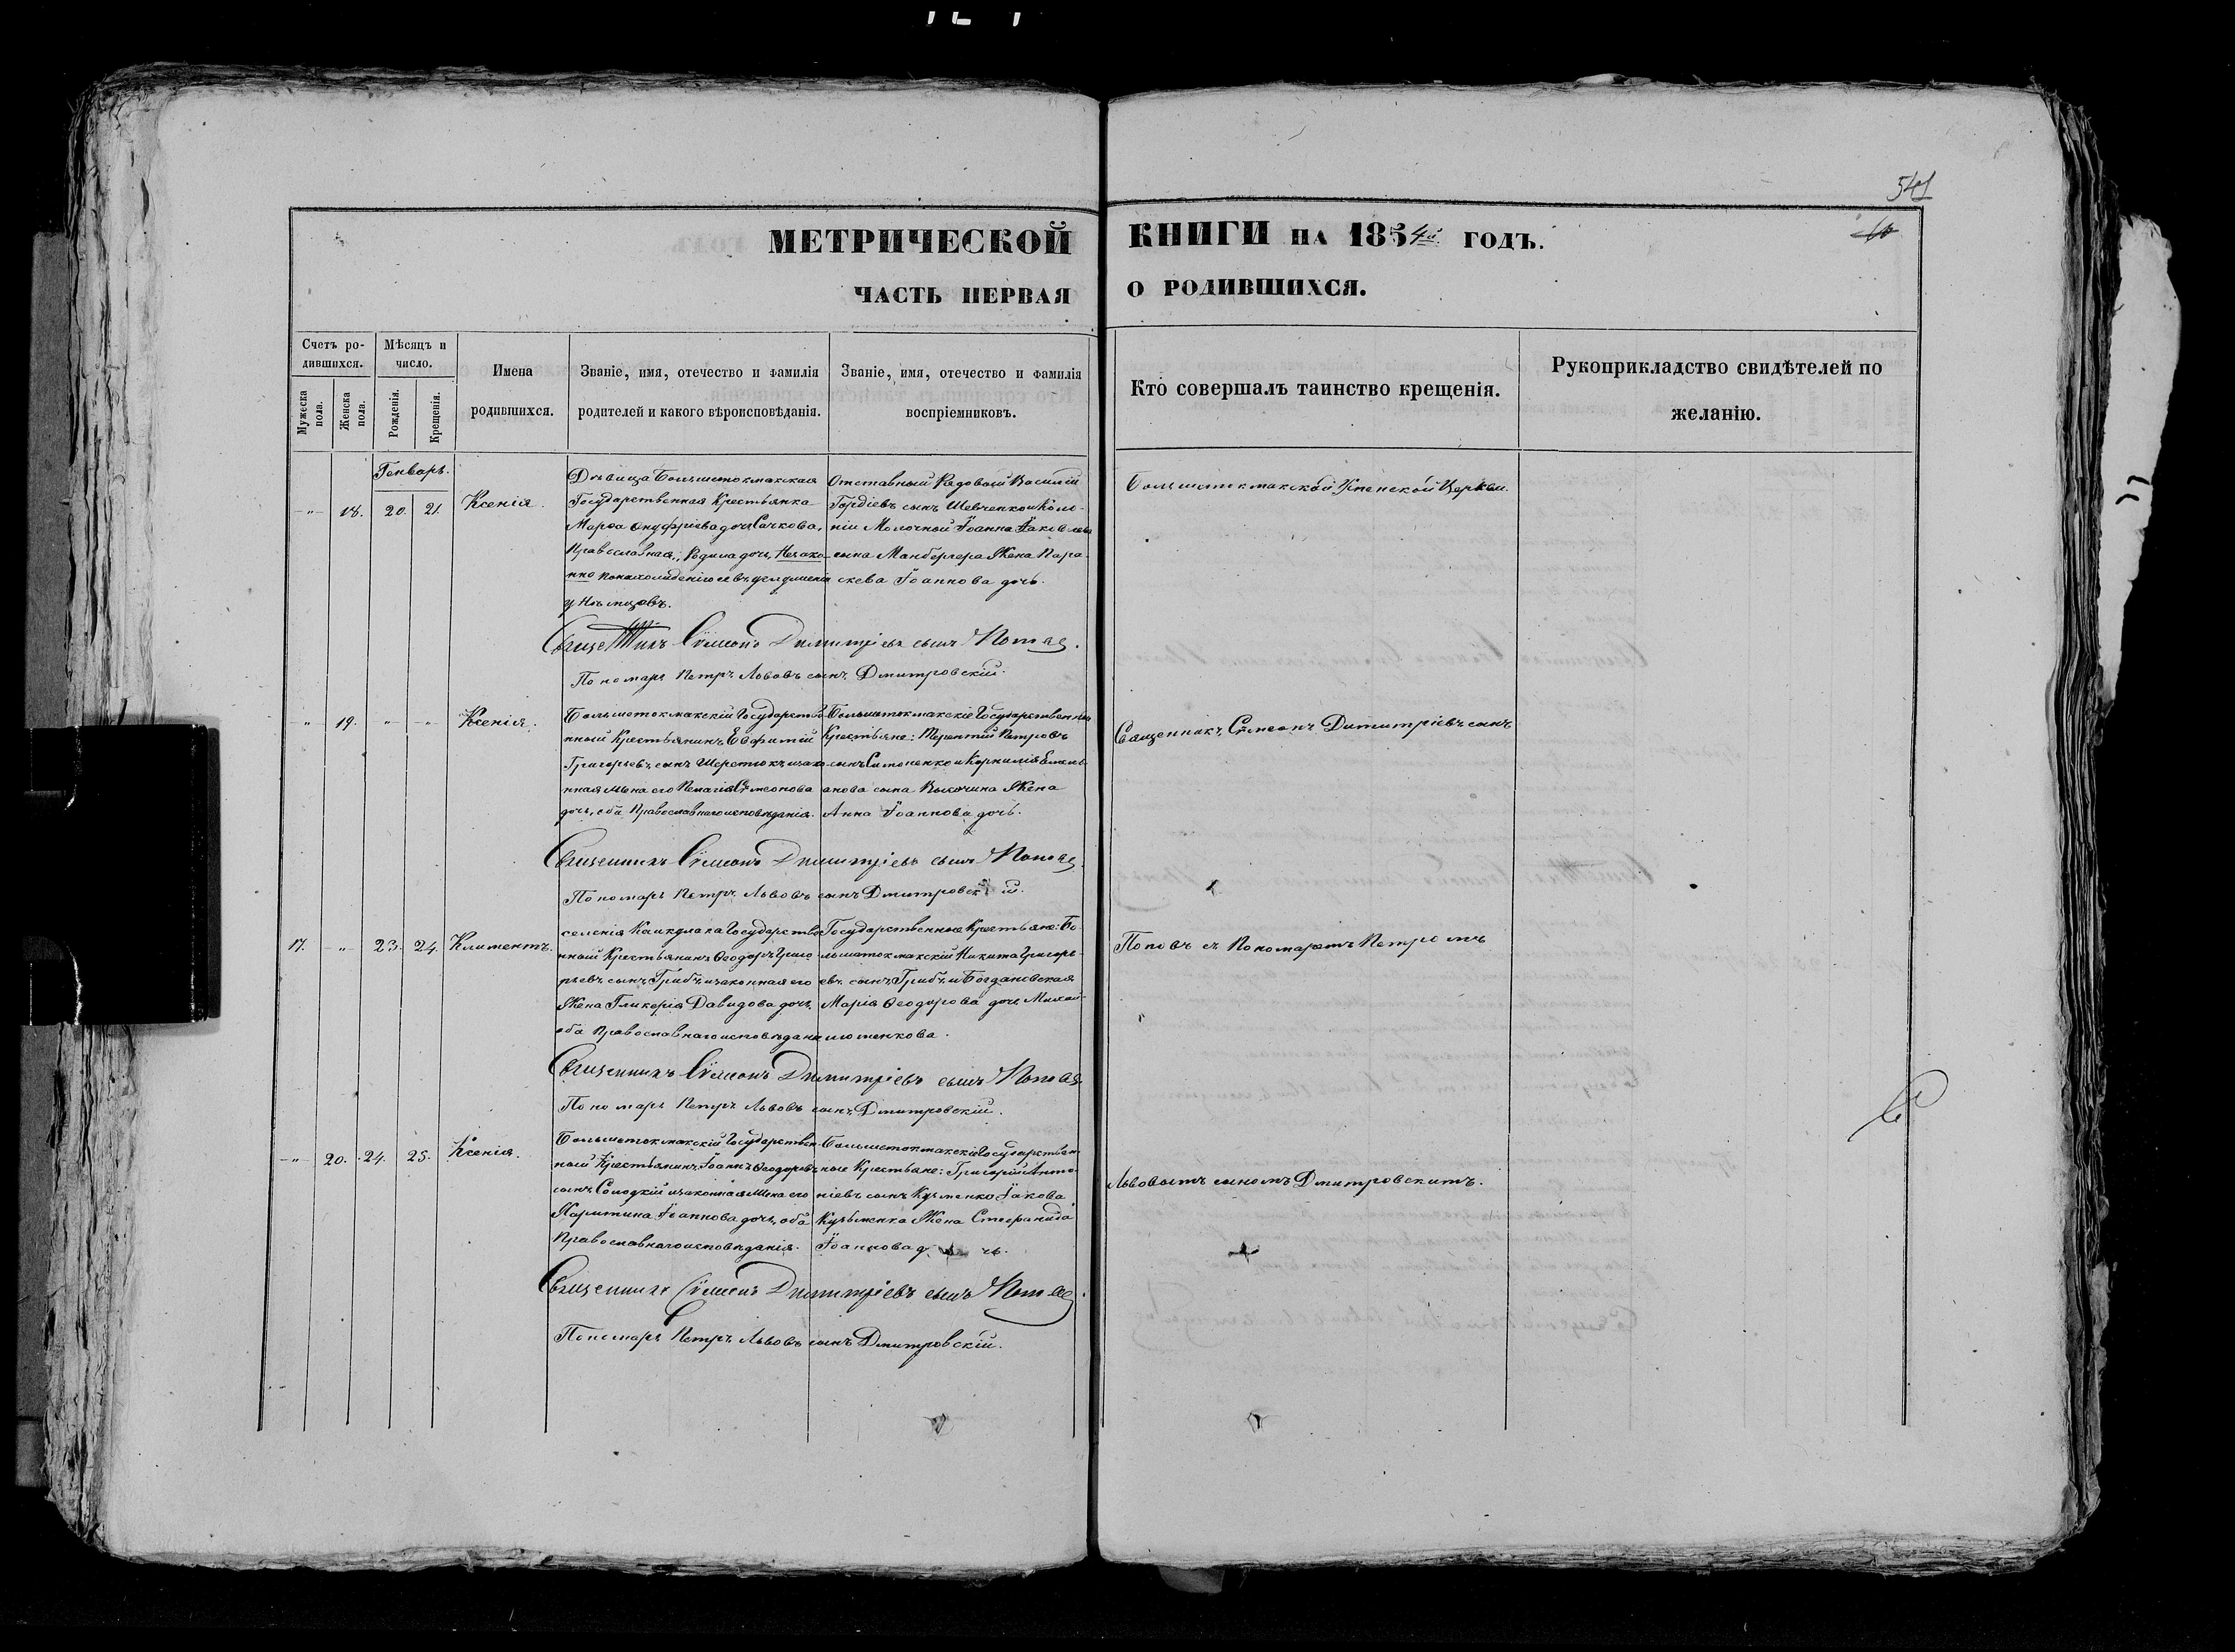 541
МЕТРИЧЕСКОЙ КНИГИ НА 1854й ГОДЪ.
10
ЧАСТЬ ПЕРВАЯ О РОДИВШИХСЯ.
Счетъ ро-
дившихся.
Мужеска пола.
Женска пола.
Мѣсяцъ и
число.
Рожденія.
Крещенія.
Имена
родившихся.
Званіе, имя, отечество и фамилія
родителей и какого вѣроисповѣданія.
Званіе, имя, отечество и фамилія
воспріемниковъ.
Кто совершалъ таинство крещенія.
Рукоприкладство свидѣтелей по
желанію.
Генварь.
-"- 18. 20. 21. Ксенія.
Дѣвица Большетокмакская
Государственная Крестьянка
Марѳа Онуфріева дочь Сачкова,
Православная, Родила дочь, Незако-
нно
у Нѣмцовъ.
Отставный Рядовый Василій
Гордіевъ сынъ Шевченко и Коло-
ніи Молочной Іоанна Іаковлева
сына Манбергера Жена Пара-
скева Іоаннова дочь.
Священникъ Сѵмеонъ Димитріевъ сынъ Поповъ.
Пономарь Петръ Львовъ сынъ Дмитровскій.
-"- 19. -"- -"- Ксенія.
Большетокмакскій Государстве-
нный Крестьянинъ Евфимій
Григорьевъ сынъ Шерстюкъ и зако-
нная Жена его Пелагія Сѵмеонова
дочь, оба Православнаго исповѣданія.
Большетокмакскіе Государственные
Крестьяне: Терентій Петровъ
сынъ Симоненко и Корнилія Емель-
янова сына Жена
Анна Іоаннова дочь.
Священникъ Сѵмеонъ Димитріевъ сынъ Поповъ.
Пономарь Петръ Львовъ сынъ Дмитровскій.
17. -"- 23. 24. Климентъ.
селенія Камкулака Государстве-
нный Крестьянинъ Ѳеодоръ Григо-
рьевъ сынъ Грибъ и законная его
Жена Гликерія Давидова дочь,
оба Православнаго исповѣданія
Государственные Крестьяне: Бо-
льшетокмакскій Никита Григорь-
евъ сынъ Грибъ и Богдановская
Марія Ѳеодорова дочь
Священникъ Сѵмеонъ Димитріевъ сынъ Поповъ.
Пономарь Петръ Львовъ сынъ Дмитровскій.
-"- 20. 24. 25. Ксенія.
Большетокмакскій Государствен-
ный Крестьянинъ Іоаннъ Ѳеодоровъ
сынъ Солодкій и законная Жена его
Харитина Іоаннова дочь, оба
Православнаго исповѣданія.
Большетокмакскіе Государствен-
ные Крестьяне: Григорій Анто-
ніевъ сынъ Кузменко Іакова
Кузьменка Жена Стефанида
Іоаннова дочь.
Священникъ Сѵмеонъ Димитріевъ сынъ Поповъ.
Пономарь Петръ Львовъ сынъ Дмитровскій.
Большетокмакской Успенской Церкви.
Священникъ Сѵмеонъ Димитріевъ сынъ
Поповъ съ Пономаремъ Петромъ
Львовымъ сыномъ Дмитровскимъ.